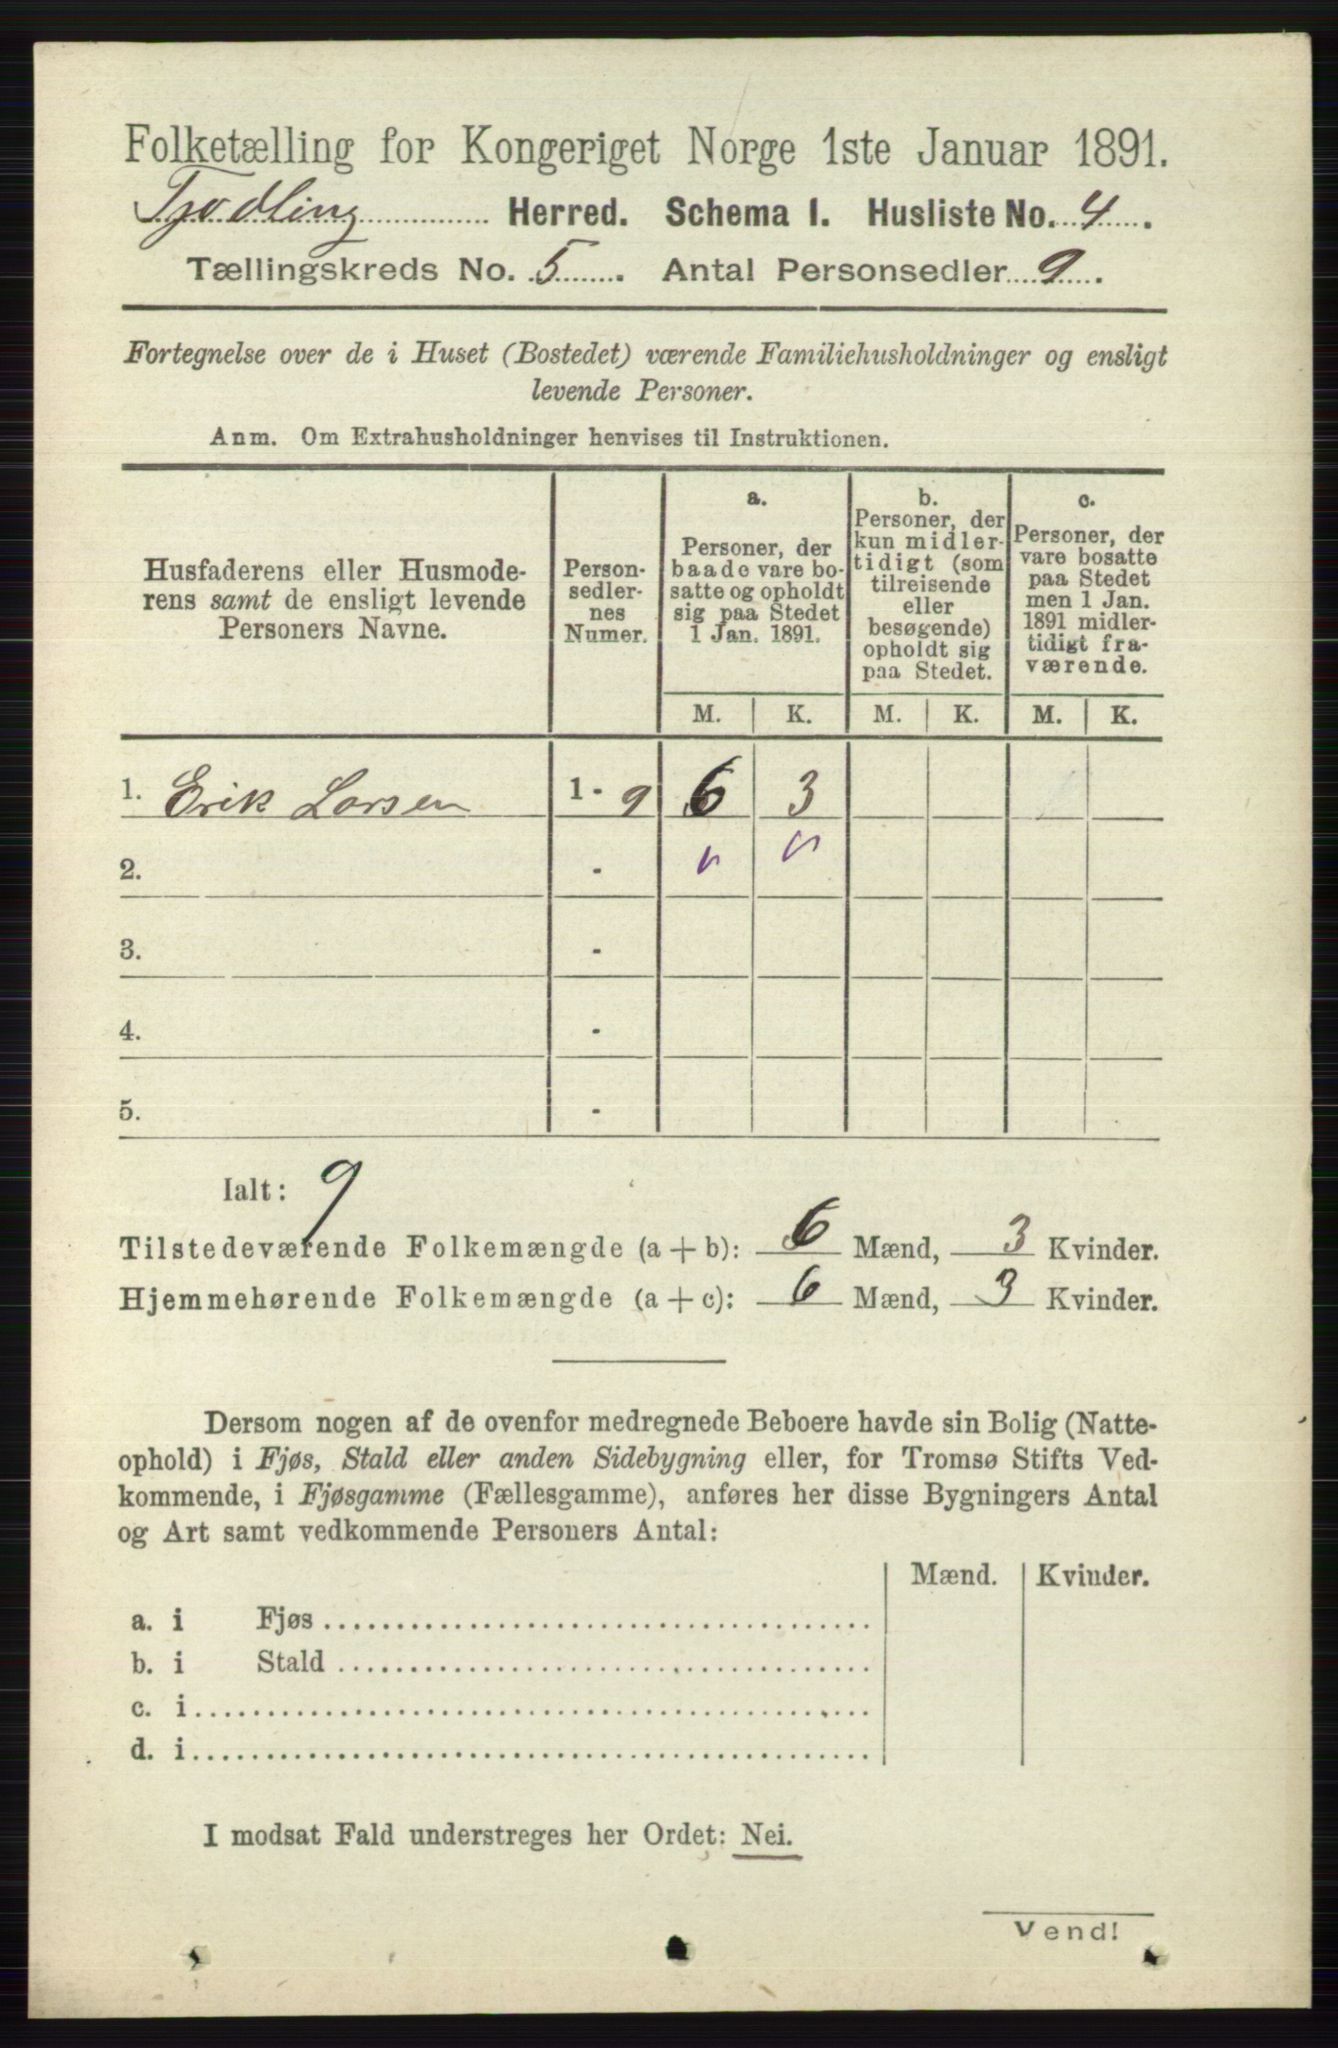 Folketælling for Kongeriget Norge 1ste Januar 1891.
Tjødling Herred. Schema I. Husliste No. 4.
Tællingskreds No. 5. Antal Personsedler 9.
Fortegnelse over de i Huset (Bostedet) værende Familiehusholdninger og ensligt
levende Personer.
Anm. Om Extrahusholdninger henvises til Instruktionen.
Husfaderens eller Husmode-
rens samt de ensligt levende
Personers Navne.
Person-
sedler-
nes
Numer.
a.
Personer, der
baade vare bo-
satte og opholdt
sig paa Stedet
1 Jan. 1891.
b.
Personer, der
kun midler-
tidigt (som
tilreisende
eller
besøgende)
opholdt sig
paa Stedet.
c.
Personer, der
vare bosatte
paa Stedet
men 1 Jan.
1891 midler-
tidigt fra-
værende.
M. K. M. K. M. K.
1. Erik Larsen 1 - 9 6 3
2. -
3. -
4. -
5. -
Ialt: 9
Tilstedeværende Folkemængde (a + b): 6 Mænd, 3 Kvinder.
Hjemmehørende Folkemængde (a + c): 6 Mænd, 3 Kvinder.
Dersom nogen af de ovenfor medregnede Beboere havde sin Bolig (Natte-
ophold) i Fjøs, Stald eller anden Sidebygning eller, for Tromsø Stifts Ved-
kommende, i Fjøsgamme (Fællesgamme), anføres her disse Bygningers Antal
og Art samt vedkommende Personers Antal:
Mænd. Kvinder.
a. i Fjøs
b. i Stald
c. i
d. i
I modsat Fald understreges her Ordet: Nei.
Vend!